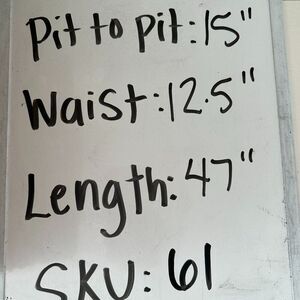 Pit to pit: 15"
Waist: 12.5"
Length: 47"
SKU: 61